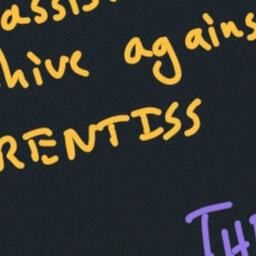 assis
hive against
RENTISS
TH